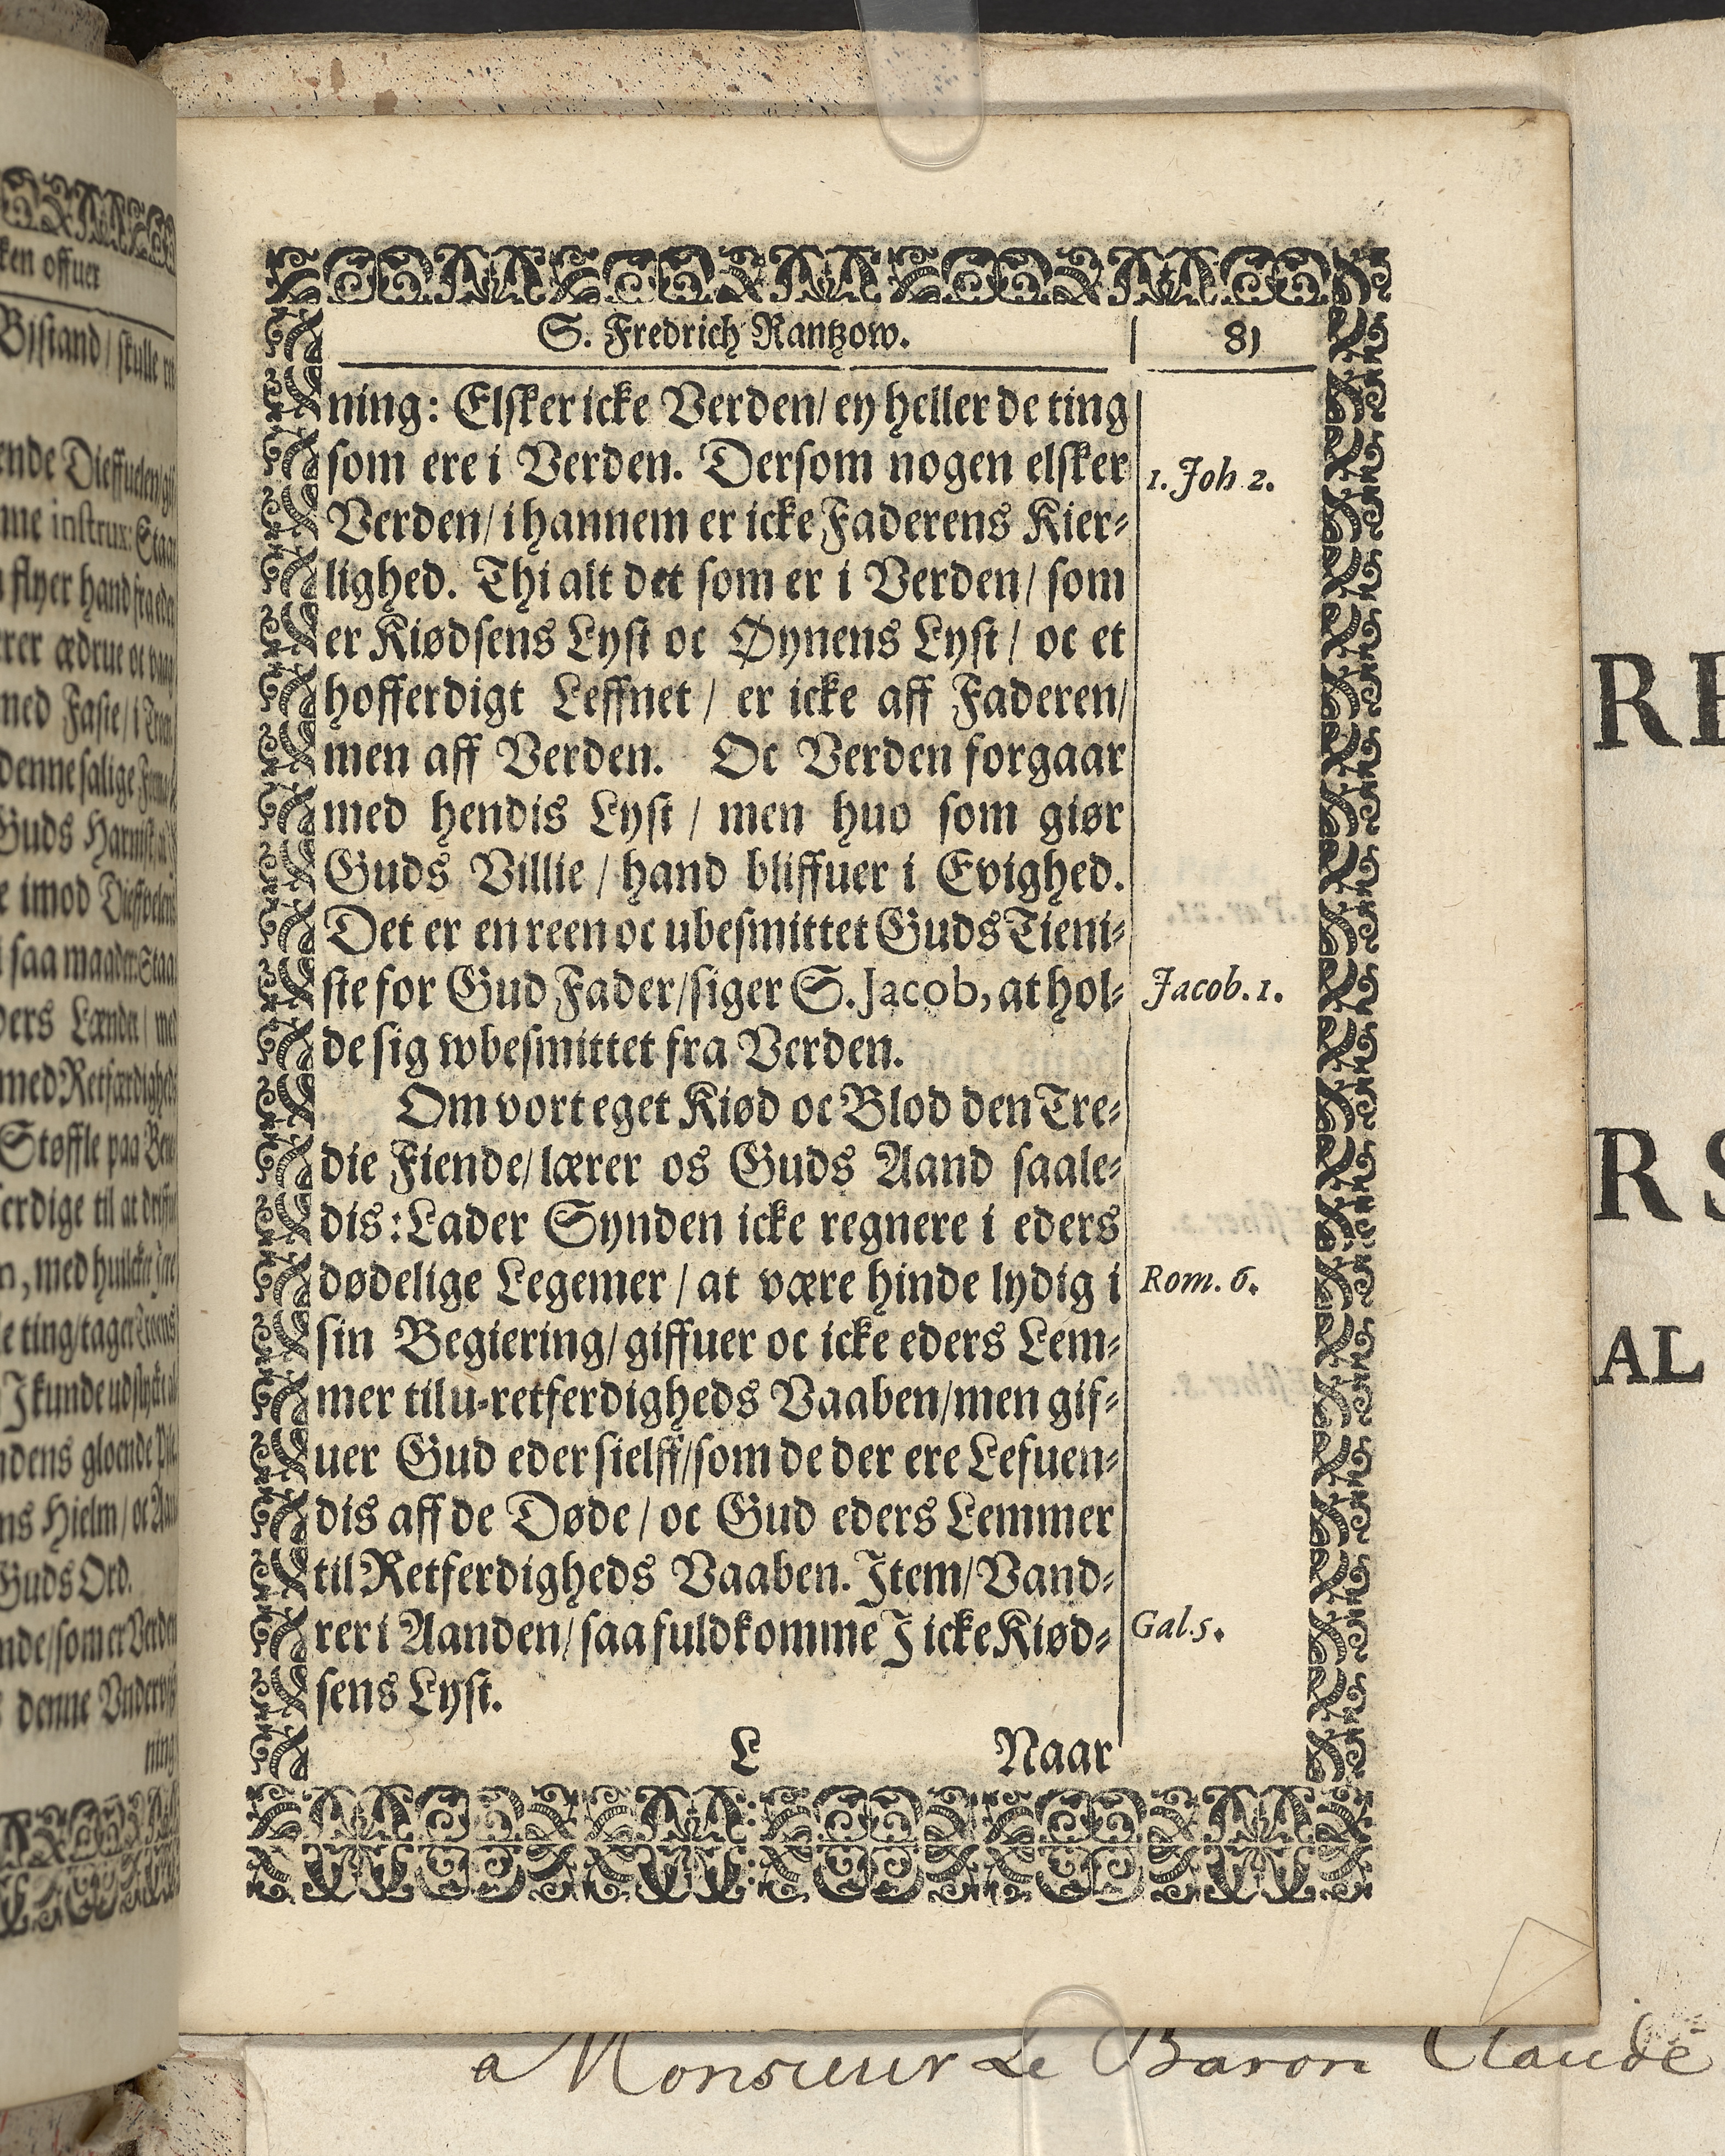 S. Fredrich Rantzow. 81
ning: Elsker icke Verden/ ey heller de ting
som ere i Verden. Dersom nogen elsker
1. Joh 2.
Verden/ i hannem er icke Faderens Kier-
lighed. Thi alt det som er i Verden/ som
er Kiødsens Lyst oc Øynens Lyst/ oc et
hofferdigt Leffnet/ er icke aff Faderen/
men aff Verden. Oc Verden forgaar
med hendis Lyst/ men huo som giør
Guds Villie/ hand bliffuer i Evighed.
Det er en reen oc ubesmittet Guds Tieni-
ste for Gud Fader/ siger S. Jacob, at hol-
Jacob. 1.
de sig wbesmittet fra Verden.
Om vort eget Kiød oc Blod den Tre-
die Fiende/ lærer os Guds Aand saale-
dis: Lader Synden icke regnere i eders
dødelige Legemer/ at være hinde lydig i
Rom. 6.
sin Begiering/ giffuer oc icke eders Lem-
mer til u-retferdigheds Vaaben/ men gif-
uer Gud eder sielff/ som de der ere Lefuen-
dis aff de Døde/ oc Gud eders Lemmer
til Retferdigheds Vaaben. Item/ Vand-
rer i Aanden/ saa fuldkomme I icke Kiød-
Gal. 5.
sens Lyst.
L Naar
ken offuer
Bistand/ skulle
ende Dieffuelen/
me instrux: Staa
flyer hand fra eder
rer ædrue oc
med Faste/ i
denne salige
Guds Harnisk
e imod Dieffvelens
saa maader: Staa
ders Lænder/ med
med Retfærdigheds
Støffle paa
erdige til at
n, med huilcke
e ting/ tager Troens
I kunde udslycke
ndens gloende
ns Hielm/ oc
Guds Ord.
nde/ som er Verden
denne Undervis
ning
RE
R S
AL
a Monsieur Le Baron Claude